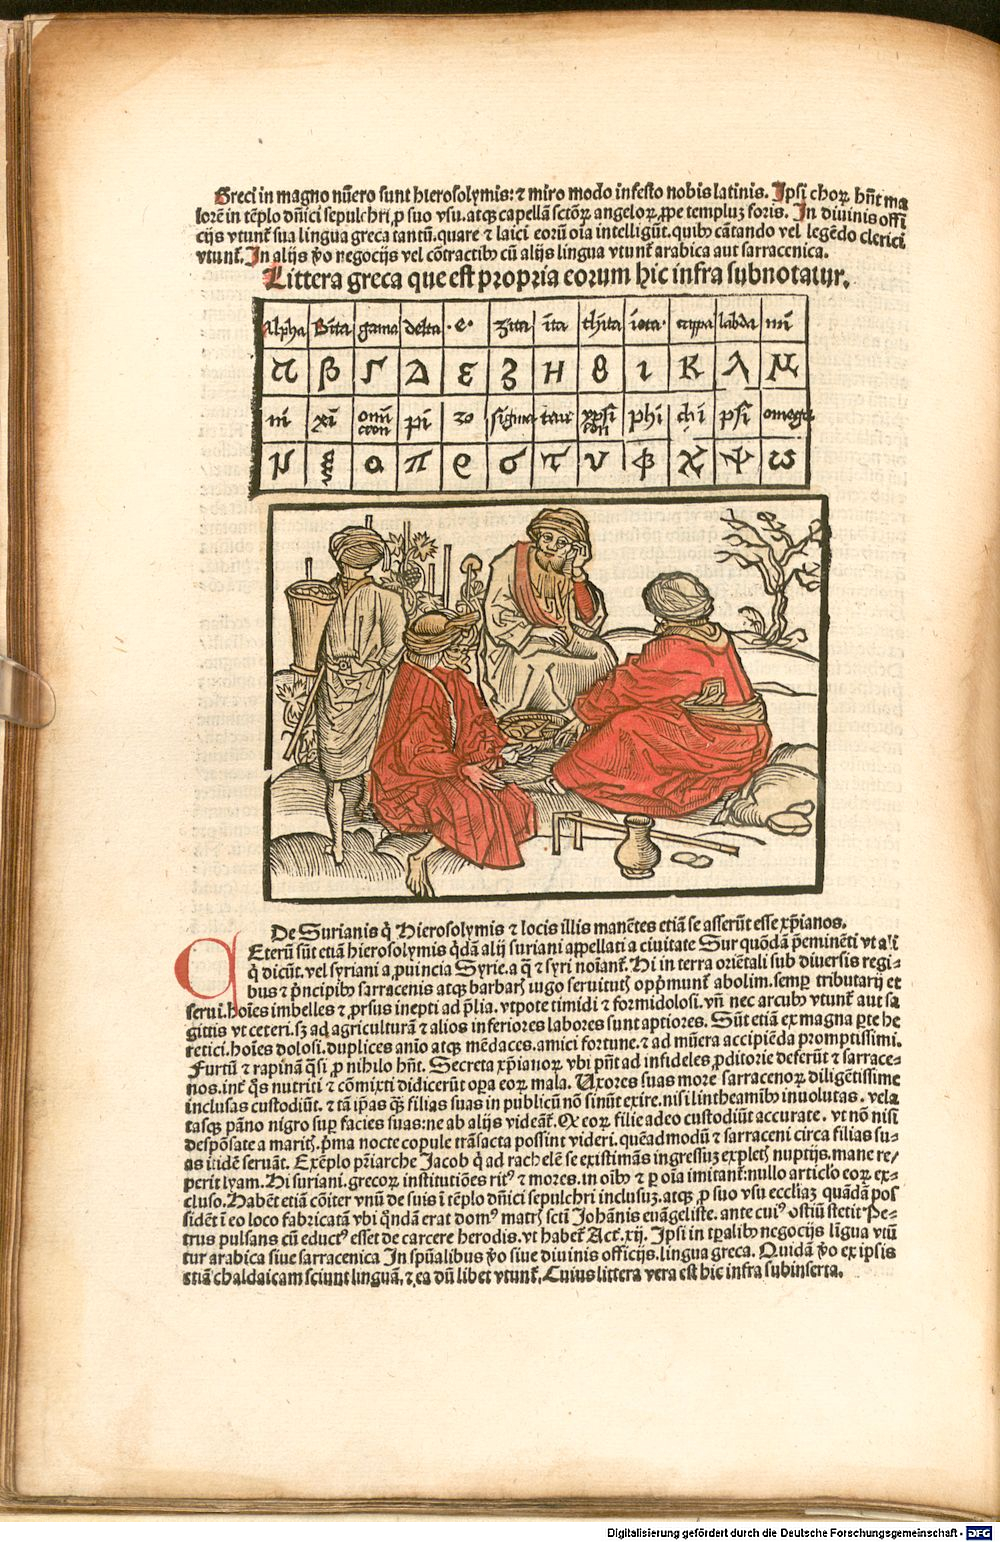 Greci in magno nũero sunt hierosolymis: ⁊ miro modo infesto nobis latinis. Ipsi choꝝ hñt ma
iorẽ in tẽplo dñici sepulchri, ꝓ suo vsu. atqꝫ capellã sctõꝝ angeloꝝ, ꝓpe templuꝫ foris. In diuinis offi
cijs vtunt᷑ sua lingua greca tantũ. quare ⁊ laici eorũ oĩa intelligũt. quibꝰ cãtando vel legẽdo clerici
vtunt᷑. In alijs ꝟo negocijs vel cõtractibꝰ cũ alijs lingua vtunt᷑ arabica aut sarracenica.
Littera greca que est propria eorum hic infra subnotatur.
alpha Bita gama delta .e. zita ita thita iota cappa labda mi
α β Γ Δ ε ζ H θ ι K λ M
ni xi omicron pi ro sigma tau ypsilon phi chi psi omega
N ξ o π ρ σ τ υ φ χ ψ ω
De Surianis q̃ Hierosolymis ⁊ locis illis manẽtes etiã se asserũt esse xp̃ianos.
Ceterũ sũt etiã hierosolymis q̃dã alij suriani appellati a ciuitate Sur quõdã p̃eminẽti vt alij
q̃ dicũt. vel syriani a ꝓuincia Syrie. a q̃ ⁊ syri noĩant᷑. Hi in terra oriẽtali sub diuersis regi-
bus ⁊ p̃ncipibꝰ sarracenis atqꝫ barbarꝭ iugo seruitutꝭ opp̃munt᷑ abolim. semꝑ tributarij et
serui. hoĩes imbelles ⁊ ꝓrsus inepti ad p̃lia. vtpote timidi ⁊ formidolosi. vñ nec arcubꝰ vtunt᷑ aut sa
gittis vt ceteri. sꝫ ad agriculturã ⁊ alios inferiores labores sunt aptiores. Sũt etiã ex magna ꝑte he
retici. hoĩes dolosi. duplices anĩo atqꝫ mẽdaces. amici fortune. ⁊ ad mũera accipiẽda promptissimi.
Furtũ ⁊ rapinã q̃si ꝓ nihilo hñt. Secreta xp̃ianoꝝ vbi pñt ad infideles ꝓditorie deferũt ⁊ sarrace-
nos. int᷑ q̃s nutriti ⁊ cõmixti didicerũt oꝑa eoꝝ mala. Uxores suas more sarracenoꝝ diligẽtissime
inclusas custodiũt. ⁊ tã ip̃as qꝫ filias suas in publicũ nõ sinũt exire. nisi lintheamibꝰ inuolutas. vela
tasqꝫ pãno nigro suꝑ facies suas: ne ab alijs videãt᷑. Ex eoꝝ filie adeo custodiũt accurate. vt nõ nisi
despõsate a maritꝭ. p̃ma nocte copule trãsacta possint videri. quẽadmodũ ⁊ sarraceni circa filias su-
as itidẽ seruãt. Exẽplo pr̃iarche Jacob q̃ ad rachelẽ se existimãs ingressuꝫ expletꝭ nuptijs. mane re/
perit lyam. Hi suriani. grecoꝝ institutiões ritꝰ ⁊ mores. in oĩbꝰ ⁊ ꝑ oĩa imitant᷑: nullo articlo eoꝝ ex-
cluso. Habẽt etiã cõiter vnũ de suis ĩ tẽplo dñici sepulchri inclusuꝫ. atqꝫ ꝓ suo vsu eccliaꝫ quãdã pos
sidẽt ĩ eo loco fabricatã vbi q̃ndã erat domꝰ matrꝭ sctĩ Johãnis euãgeliste. ante cuiꝰ ostiũ stetit Pe-
trus pulsans cũ eductꝰ esset de carcere herodis. vt habet᷑ Act. xij. Ipsi in tꝑalibꝰ negocijs lĩgua vtũ
tur arabica siue sarracenica In spũalibus ꝟo siue diuinis officijs. lingua greca. Quidã ꝟo ex ipsis
etiã chaldaicam sciunt linguã, ⁊ ea dũ libet vtunt᷑. Cuius littera vera est hic infra subinserta.
Digitalisierung gefördert durch die Deutsche Forschungsgemeinschaft - DFG